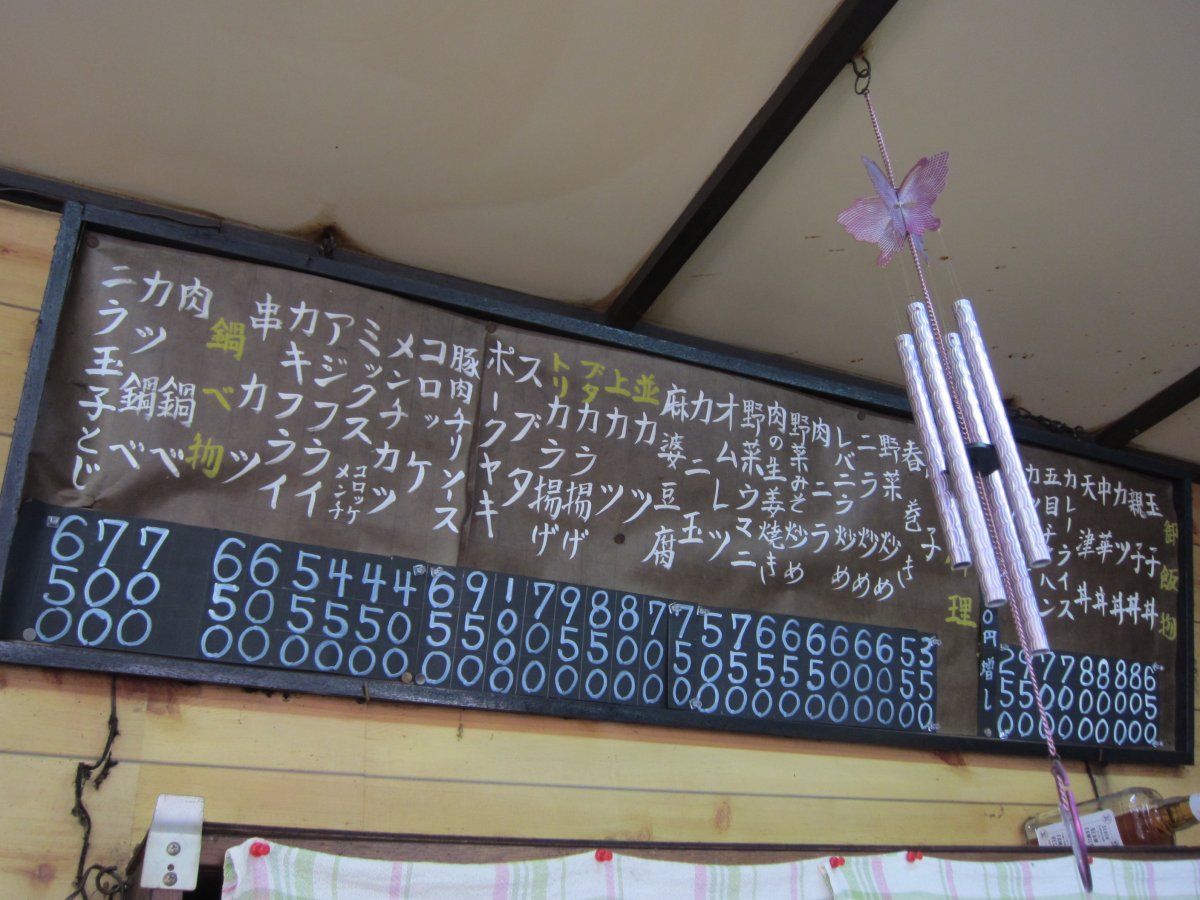 御飯物
玉子丼 650
親子丼 800
カツ丼 800
中華丼 800
天津丼 700
カレーライス 700
0円増し
理
春巻き 550
野菜炒め 600
ニラ炒め 600
レバニラ炒め 600
肉ニラ
野菜みそ炒め 650
肉の生姜焼き 650
野菜ウマニ 750
オムレツ 500
カニ玉 750
麻婆豆腐 700
並カツ 800
上カツ 850
ブタカラ揚げ 950
トリカラ揚げ 700
スブタ
ポークヤキ 950
豚肉チリソース 650
コロッケ 400
メンチカツ 450
ミックス コロッケ メンチ 450
アジフライ 550
カキフライ 600
串カツ 650
鍋べ物
肉鍋べ 700
カツ鍋べ 700
ニラ玉子とじ 650